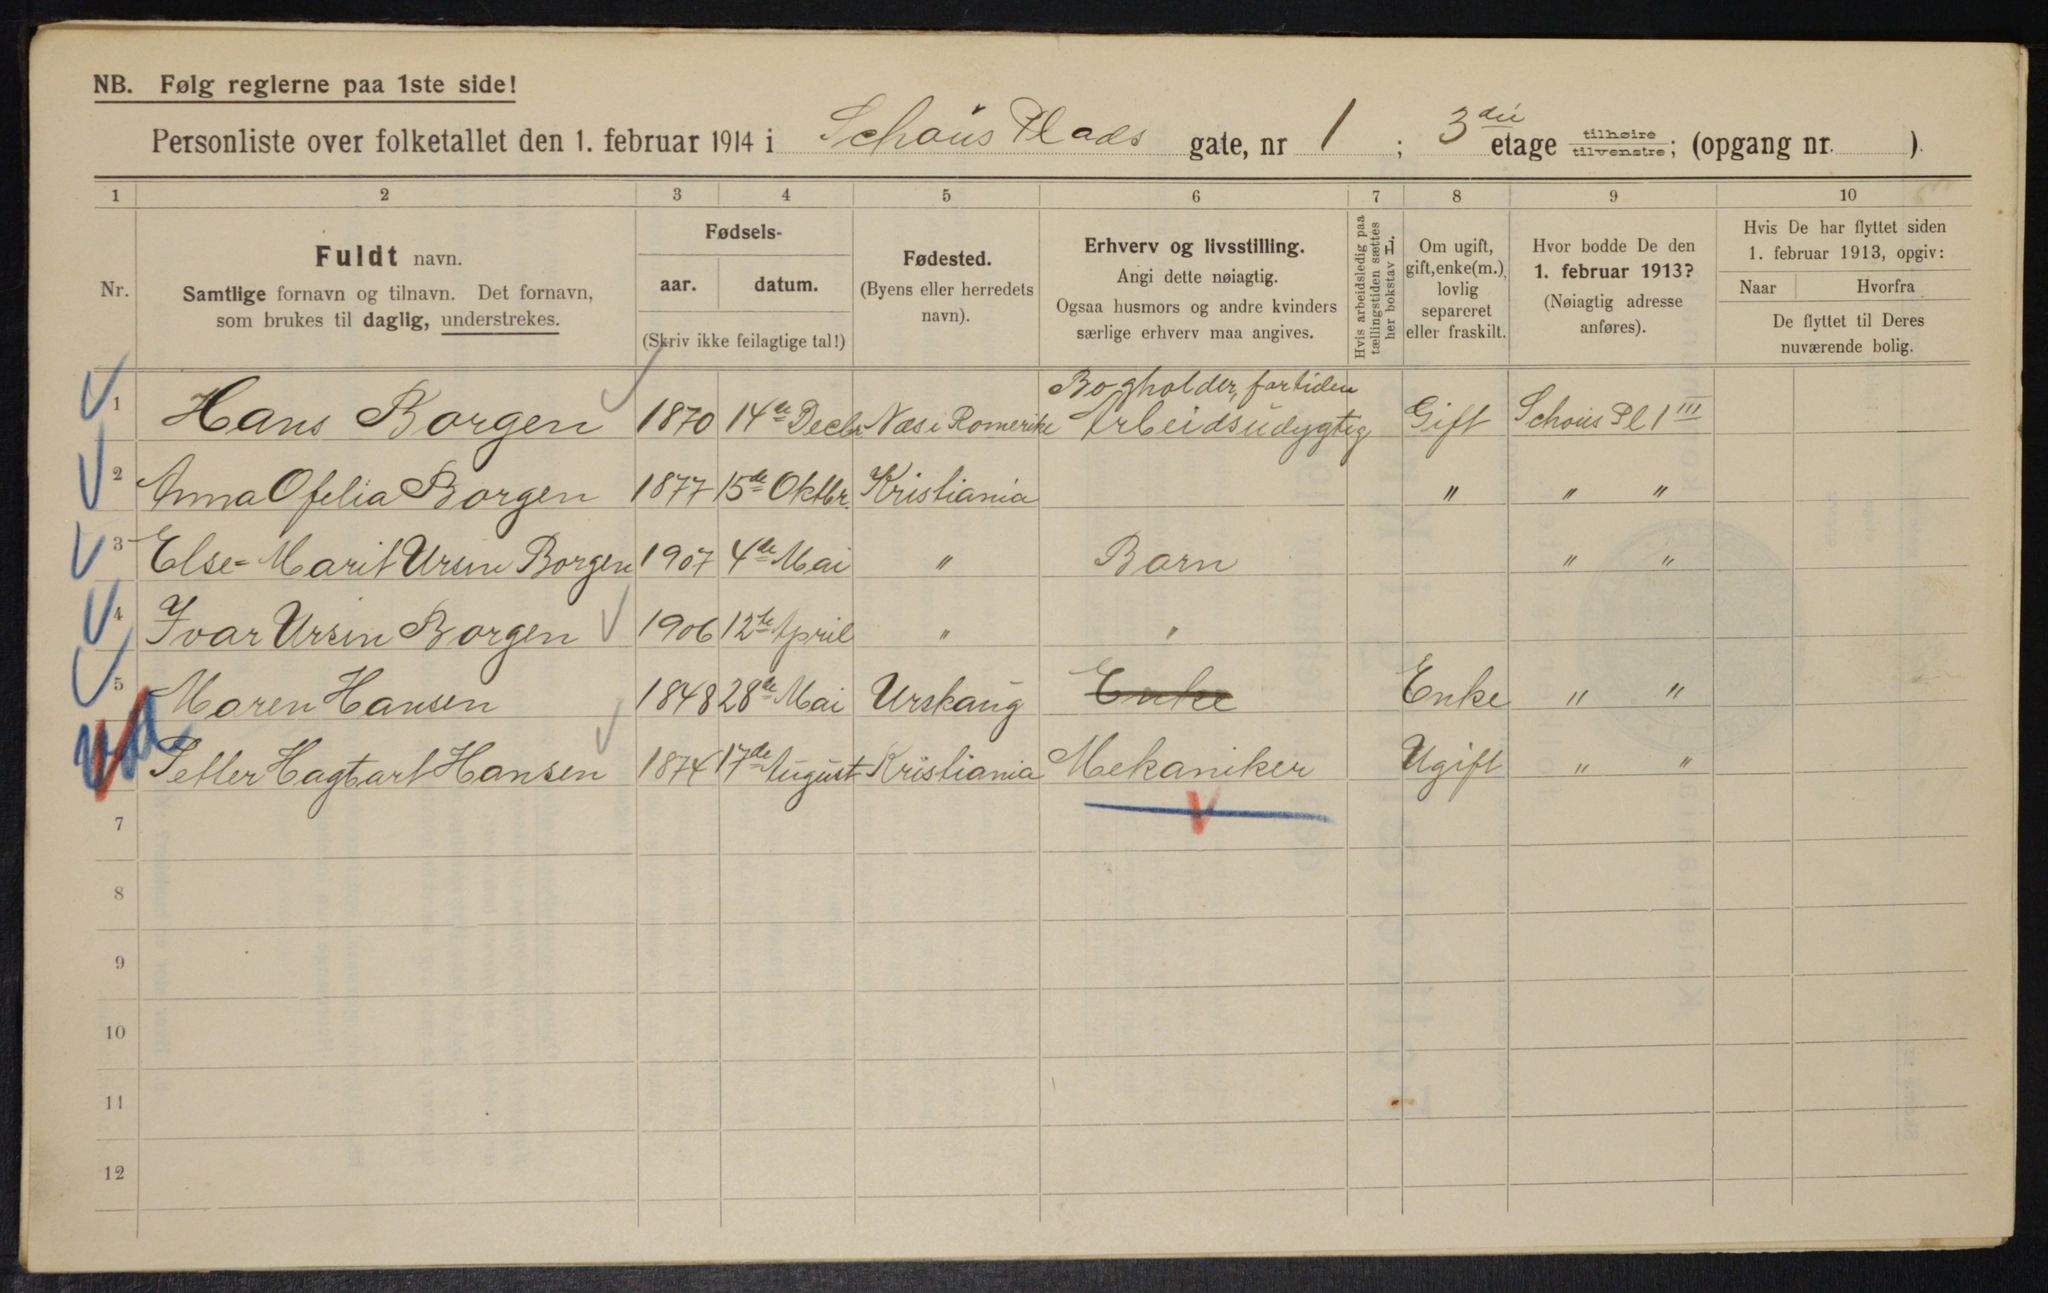 NB. Følg reglerne paa 1ste side!
Personliste over folketallet den 1. februar 1914 i Schous Plads gate, nr 1 ; 3die etage tilhøire tilvenstre; (opgang nr. ).
1 2 3 4 5 6 7 8 9 10
Nr.
Fuldt navn.
Samtlige fornavn og tilnavn. Det fornavn,
som brukes til daglig, understrekes.
Fødsels-
aar. datum.
(Skriv ikke feilagtige tal!)
Fødested.
(Byens eller herredets
navn).
Erhverv og livsstilling.
Angi dette nøiagtig.
Ogsaa husmors og andre kvinders
særlige erhverv maa angives.
Hvis arbeidsledig paa
tællingstiden sættes
her bokstav L.
Om ugift,
gift, enke(m.),
lovlig
separeret
eller fraskilt.
Hvor bodde De den
1. februar 1913?
(Nøiagtig adresse
anføres).
Hvis De har flyttet siden
1. februar 1913, opgiv:
Naar Hvorfra
De flyttet til Deres
nuværende bolig.
Bogholder, fortiden
1 Hans Borgen 1870 14de Decbr Næs i Romerike Arbeidsudygtig Gift Schous Pl 1 III
2 Anna Ofelia Borgen 1877 15de Oktbr. Kristiania " " "
3 Else-Marit Ursin Borgen 1907 4de Mai " Barn " "
4 Ivar Ursin Borgen 1906 12te April " "
5 Maren Hansen 1848 28de Mai Urskaug Enke Enke " "
Petter Hagbart Hansen 1874 17de August Kristiania Mekaniker Ugift " "
7
8
9
10
11
12